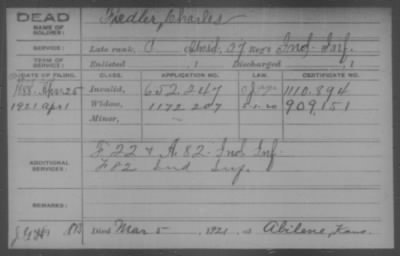 DEAD
NAME OF SOLDIER: Fiedler, Charles
SERVICE: Late rank, Ind. Inf.
TERM OF SERVICE: Enlisted , 1 Discharged , 1
DATE OF FILING. CLASS. APPLICATION NO. LAW. CERTIFICATE NO.
1888 Apr 25 Invalid, 652.247 1110.894
1921 Apr 1 Widow, 1172.207 909.151
Minor,
ADDITIONAL SERVICES: F 22 & A 82. Ind. Inf.
F 82 Ind Inf.
REMARKS:
Died Mar 5 , 1921, at Abilene, Kans.